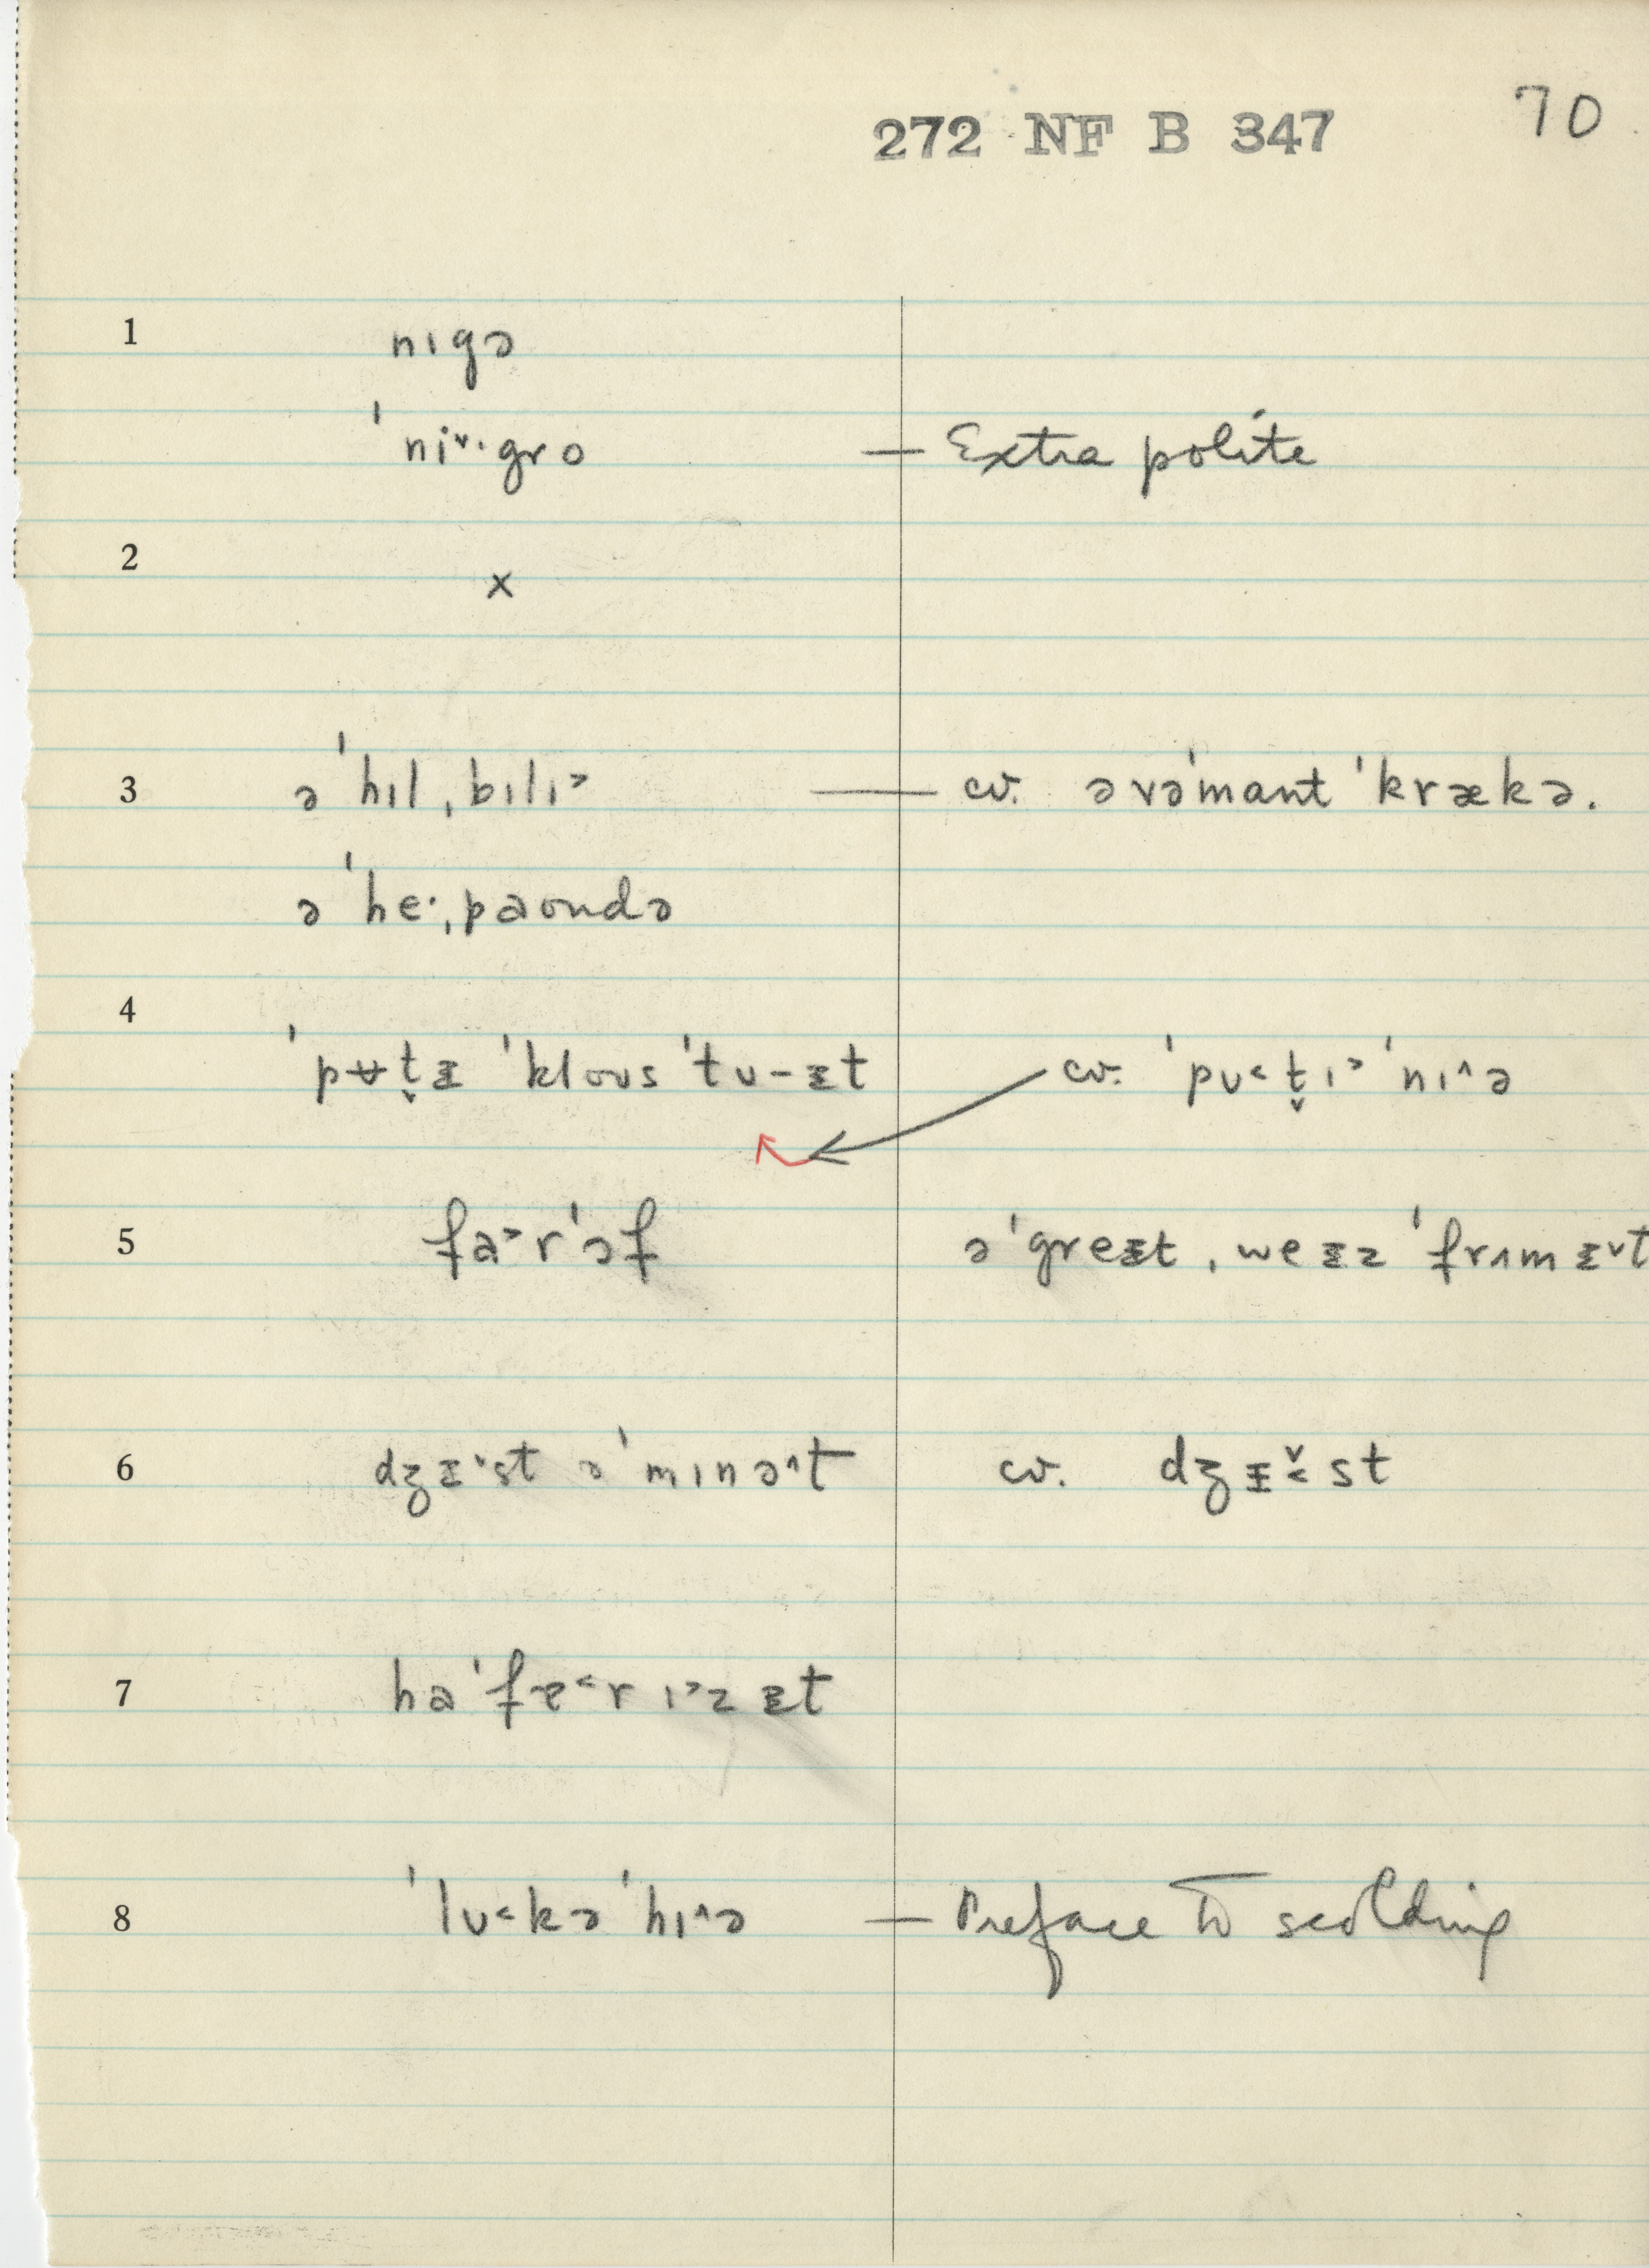 272 NF B 347 70
1 nɪgə
ˈniˇ·gro — Extra polite
2 ×
3 ə ˈhɪlˌbɪlɪ˃ — cv. ə vəˈmant ˈkrækə.
ə ˈheˑˌpaʊndə
4
ˈpʊt̬ᵻ ˈkloʊs ˈtʊ-ᵻt cv. ˈpʊ˂t̬ɪ˃ ˈnɪ^ə
5 fa˃r ˈɔf ə ˈgreᵻt ˌweᵻz ˈfrʌmᵻˇt
6 dʒᵻˇst ə ˈmɪnə^t cv. dʒᵻˇ˂st
7 ha ˈfɐ˂r ɪ˃z ᵻt
8 ˈlʊ˂kə ˈhɪ^ə — Preface to scolding